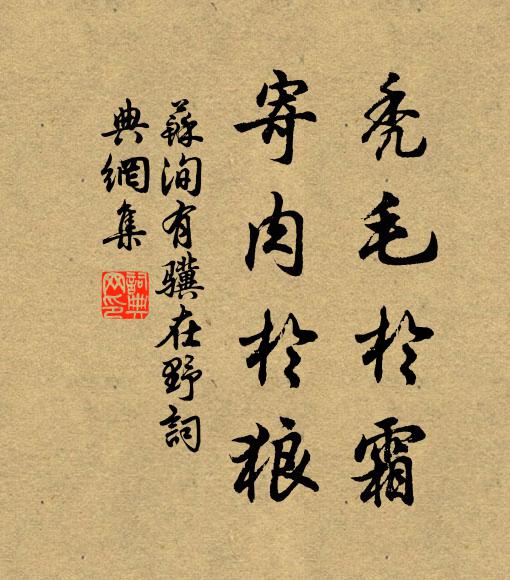 禿毛於霜
寄肉於狼
蘇洵有驥在野詞
典網集
詞典
网印